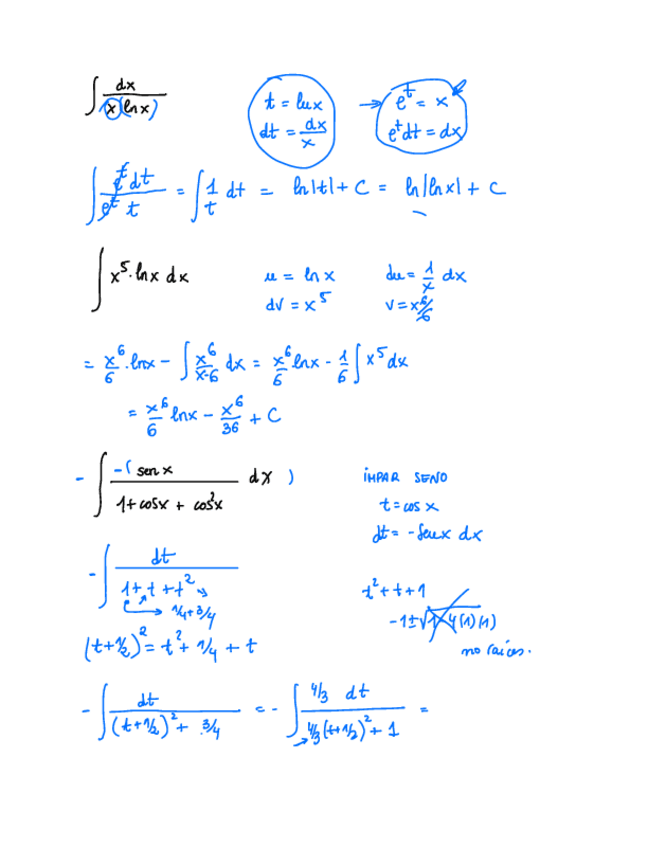 ∫ dx / x(ln x)    t = lux    → eᵗ = x
dt = dx/x    eᵗdt = dx
∫ eᵗdt / eᵗ t = ∫ 1/t dt = ln|t| + C = ln|lnx| + C
∫ x⁵·ln x dx    u = ln x    du = 1/x dx
dV = x⁵    V = x⁶/6
= x⁶/6 · lnx − ∫ x⁶/x·6 dx = x⁶/6 lnx − 1/6 ∫ x⁵dx
= x⁶/6 lnx − x⁶/36 + C
− ∫ −( sen x / 1 + cosx + cos²x dx )    IMPAR SENO
t = cos x
dt = − senx dx
− ∫ dt / 1 + t + t²    t² + t + 1
→ 1/4 + 3/4    −1 ± √1−4(1)(1)
(t+1/2)² = t² + 1/4 + t    no raíces.
− ∫ dt / (t+1/2)² + 3/4 = − ∫ 4/3 dt / 4/3(t+1/2)² + 1 =